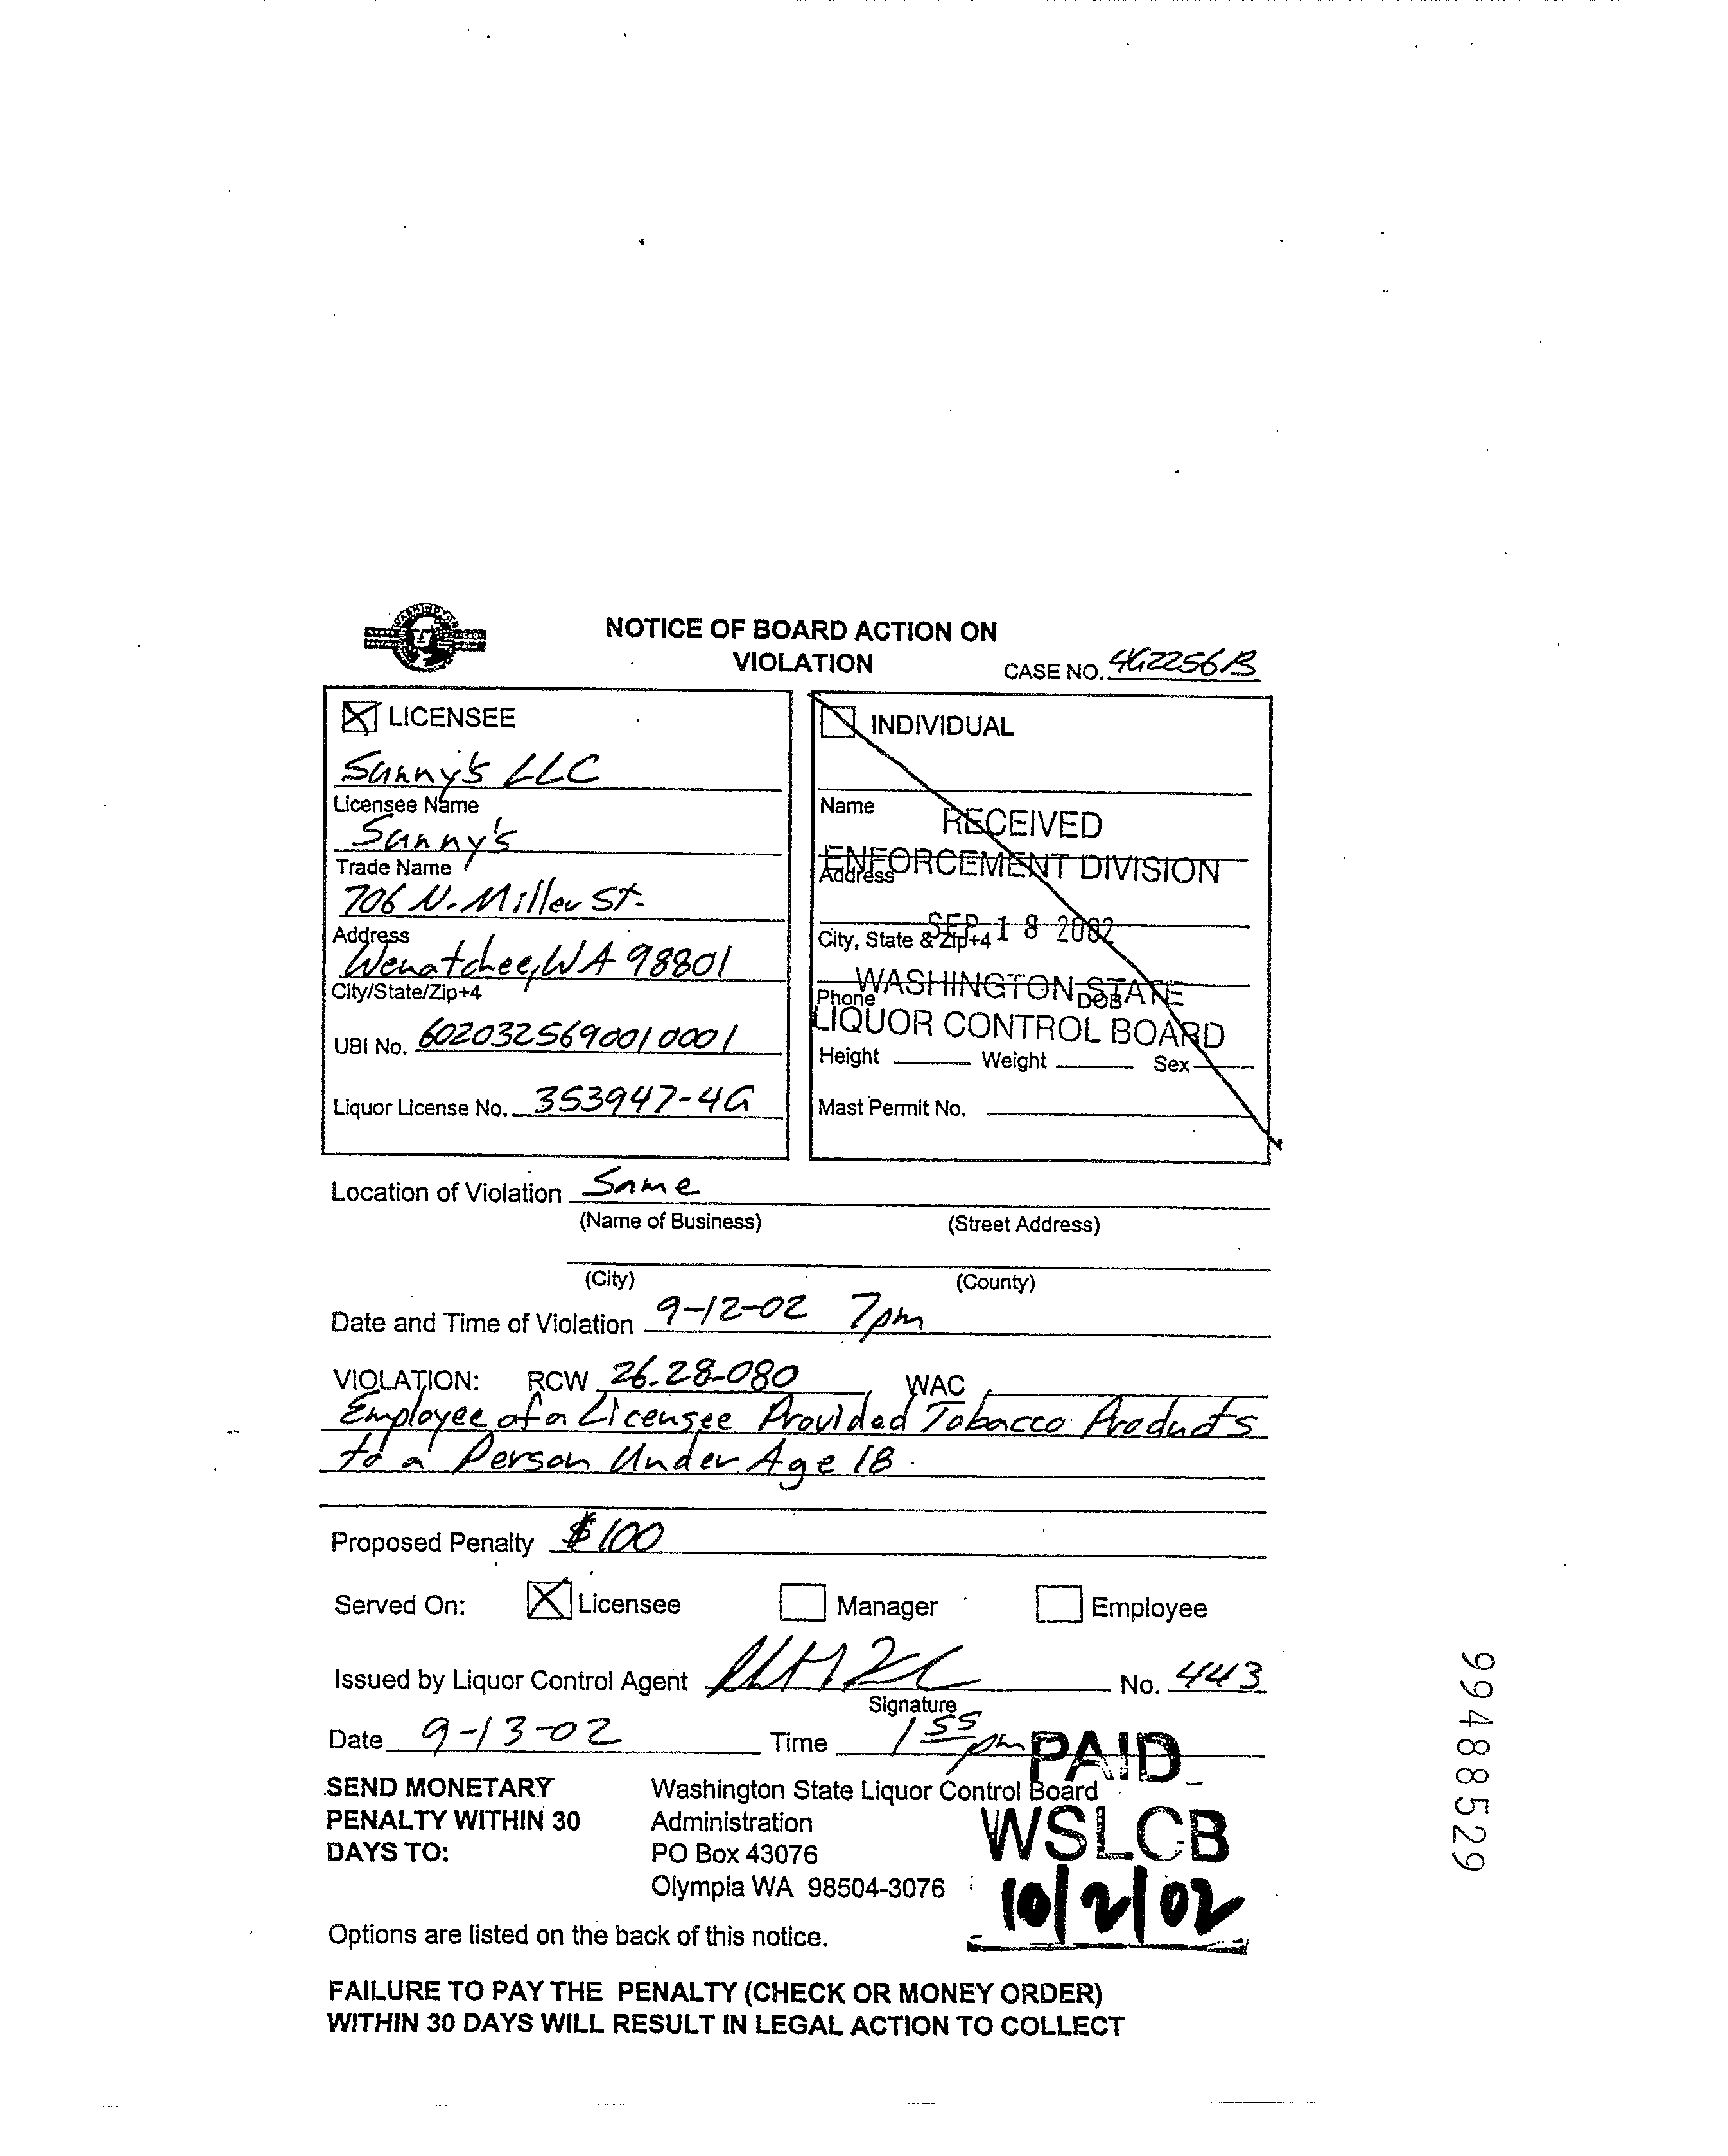 NOTICE OF BOARD ACTION ON
VIOLATION
CASE NO. 4G2256B
LICENSEE
Sunny's LLC
Licensee Name
Sunny's
Trade Name
706 N. Miller St.
Address
Wenatchee, WA 98801
City/State/Zip+4
UBI No. 6020325690010001
Liquor License No. 353947-4G
INDIVIDUAL
Name
RECEIVED
ENFORCEMENT DIVISION
Address
SEP 18 2002
City, State & Zip+4
WASHINGTON STATE
Phone DOB
LIQUOR CONTROL BOARD
Height Weight Sex
Mast Permit No.
Location of Violation Same
(Name of Business) (Street Address)
(City) (County)
Date and Time of Violation 9-12-02 7pm
VIOLATION: RCW 26.28.080 WAC
Employee of a Licensee Provided Tobacco Products
to a Person Under Age 18.
Proposed Penalty $100
Served On: Licensee Manager Employee
Issued by Liquor Control Agent No. 443
Signature
Date 9-13-02 Time 1 55 pm
PAID
SEND MONETARY Washington State Liquor Control Board
PENALTY WITHIN 30 Administration
WSLCB
DAYS TO: PO Box 43076
Olympia WA 98504-3076
10/2/02
Options are listed on the back of this notice.
FAILURE TO PAY THE PENALTY (CHECK OR MONEY ORDER)
WITHIN 30 DAYS WILL RESULT IN LEGAL ACTION TO COLLECT
99488529